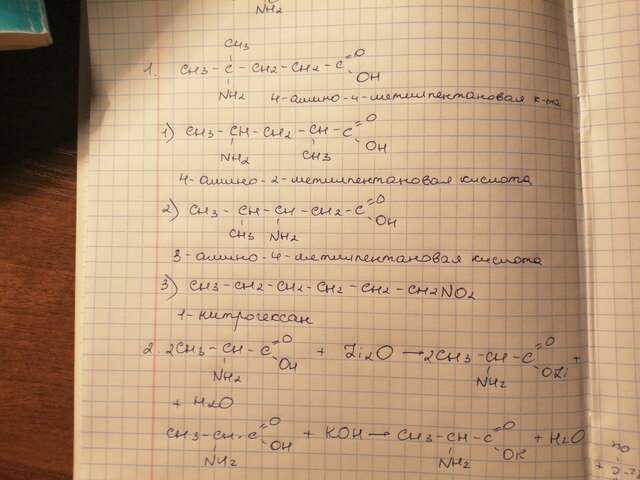 NH2
CH3
1. CH3 - C - CH2 - CH2 - C =O
OH
NH2
4-амино-4-метилпентановая к-та
1) CH3 - CH - CH2 - CH - C =O
OH
NH2 CH3
4-амино-2-метилпентановая кислота
2) CH3 - CH - CH - CH2 - C =O
OH
CH3 NH2
3-амино-4-метилпентановая кислота
3) CH3 - CH2 - CH2 - CH2 - CH2 - CH2NO2
1-нитрогексан
2. 2CH3 - CH - C =O OH + Li2O → 2CH3 - CH - C =O OLi +
NH2 NH2
+ H2O
CH3 - CH - C =O OH + KOH → CH3 - CH - C =O OK + H2O
NH2 NH2